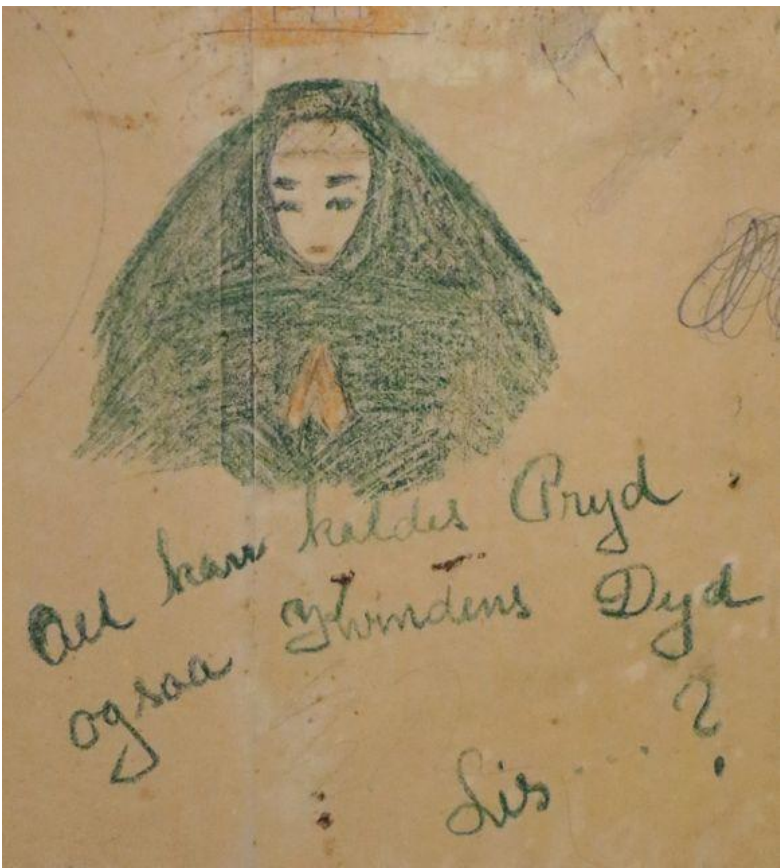 Alt kan kaldes Pryd
ogsaa Kvindens Dyd
Lis....?